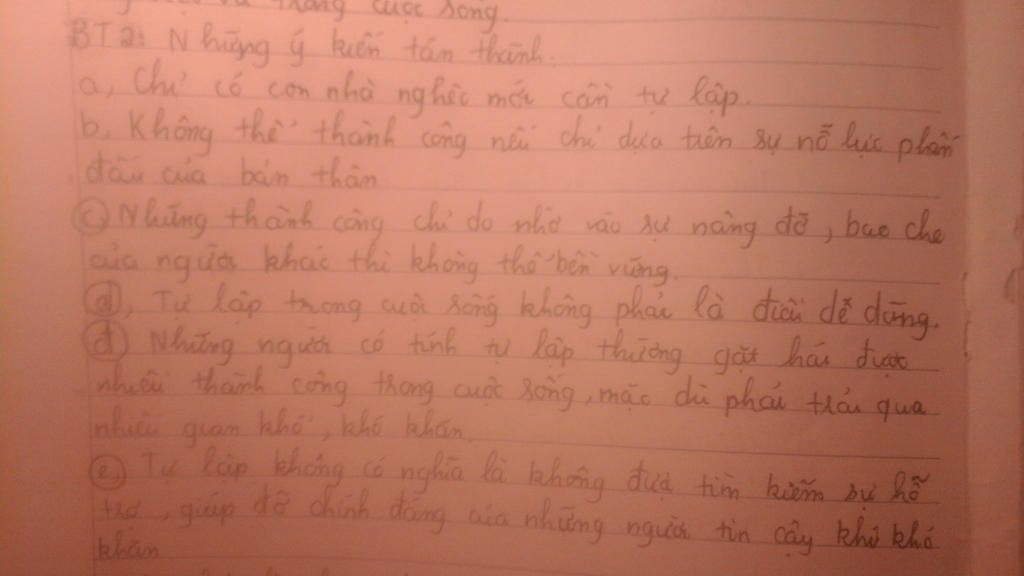 trong cuộc sống.
BT2: Những ý kiến tán thành.
a, Chỉ có con nhà nghèo mới cần tự lập.
b, Không thể thành công nếu chỉ dựa trên sự nỗ lực phấn
đấu của bản thân
c, Những thành công chỉ do nhờ vào sự nâng đỡ, bao che
của người khác thì không thể bền vững.
d, Tự lập trong cuộc sống không phải là điều dễ dàng.
đ Những người có tính tự lập thường gặt hái được
nhiều thành công trong cuộc sống, mặc dù phải trải qua
nhiều gian khổ, khó khăn.
e, Tự lập không có nghĩa là không được tìm kiếm sự hỗ
trợ, giúp đỡ chính đáng của những người tin cậy khi khó
khăn